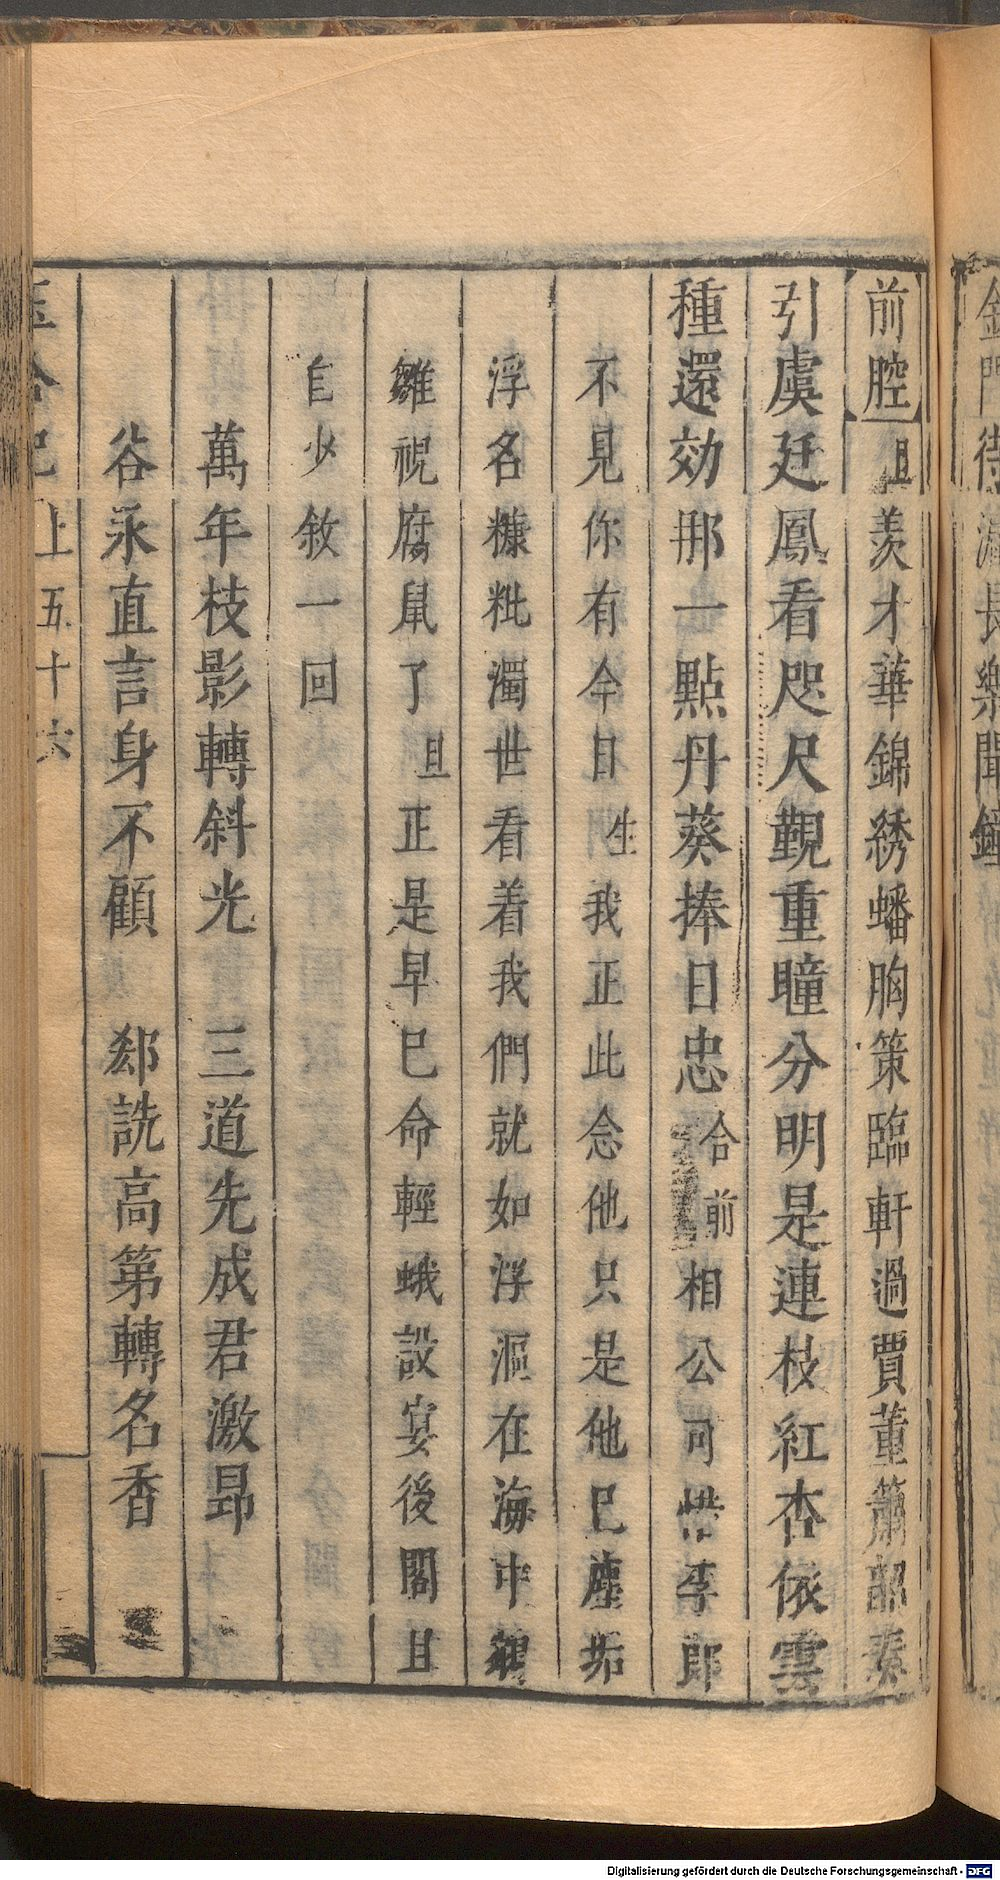 金門待漏長樂聞鐘
前腔 旦 羨才華錦綉蟠胸策臨軒過賈董簫韶奏
引虞廷鳳看咫尺覲重瞳分明是連枝紅杏依雲
種還効那一點丹葵捧日忠 合前 相公可惜李郎
不見你有今日 生 我正此念他只是他已塵垢
浮名糠粃濁世看着我們就如浮漚在海中
雛視腐鼠了 旦 正是早已命輕蛾設宴後閣且
自少敘一回
萬年枝影轉斜光 三道先成君激昂
谷永直言身不顧 郄詵高第轉名香
玉合記 上 五十六
Digitalisierung gefördert durch die Deutsche Forschungsgemeinschaft - DFG